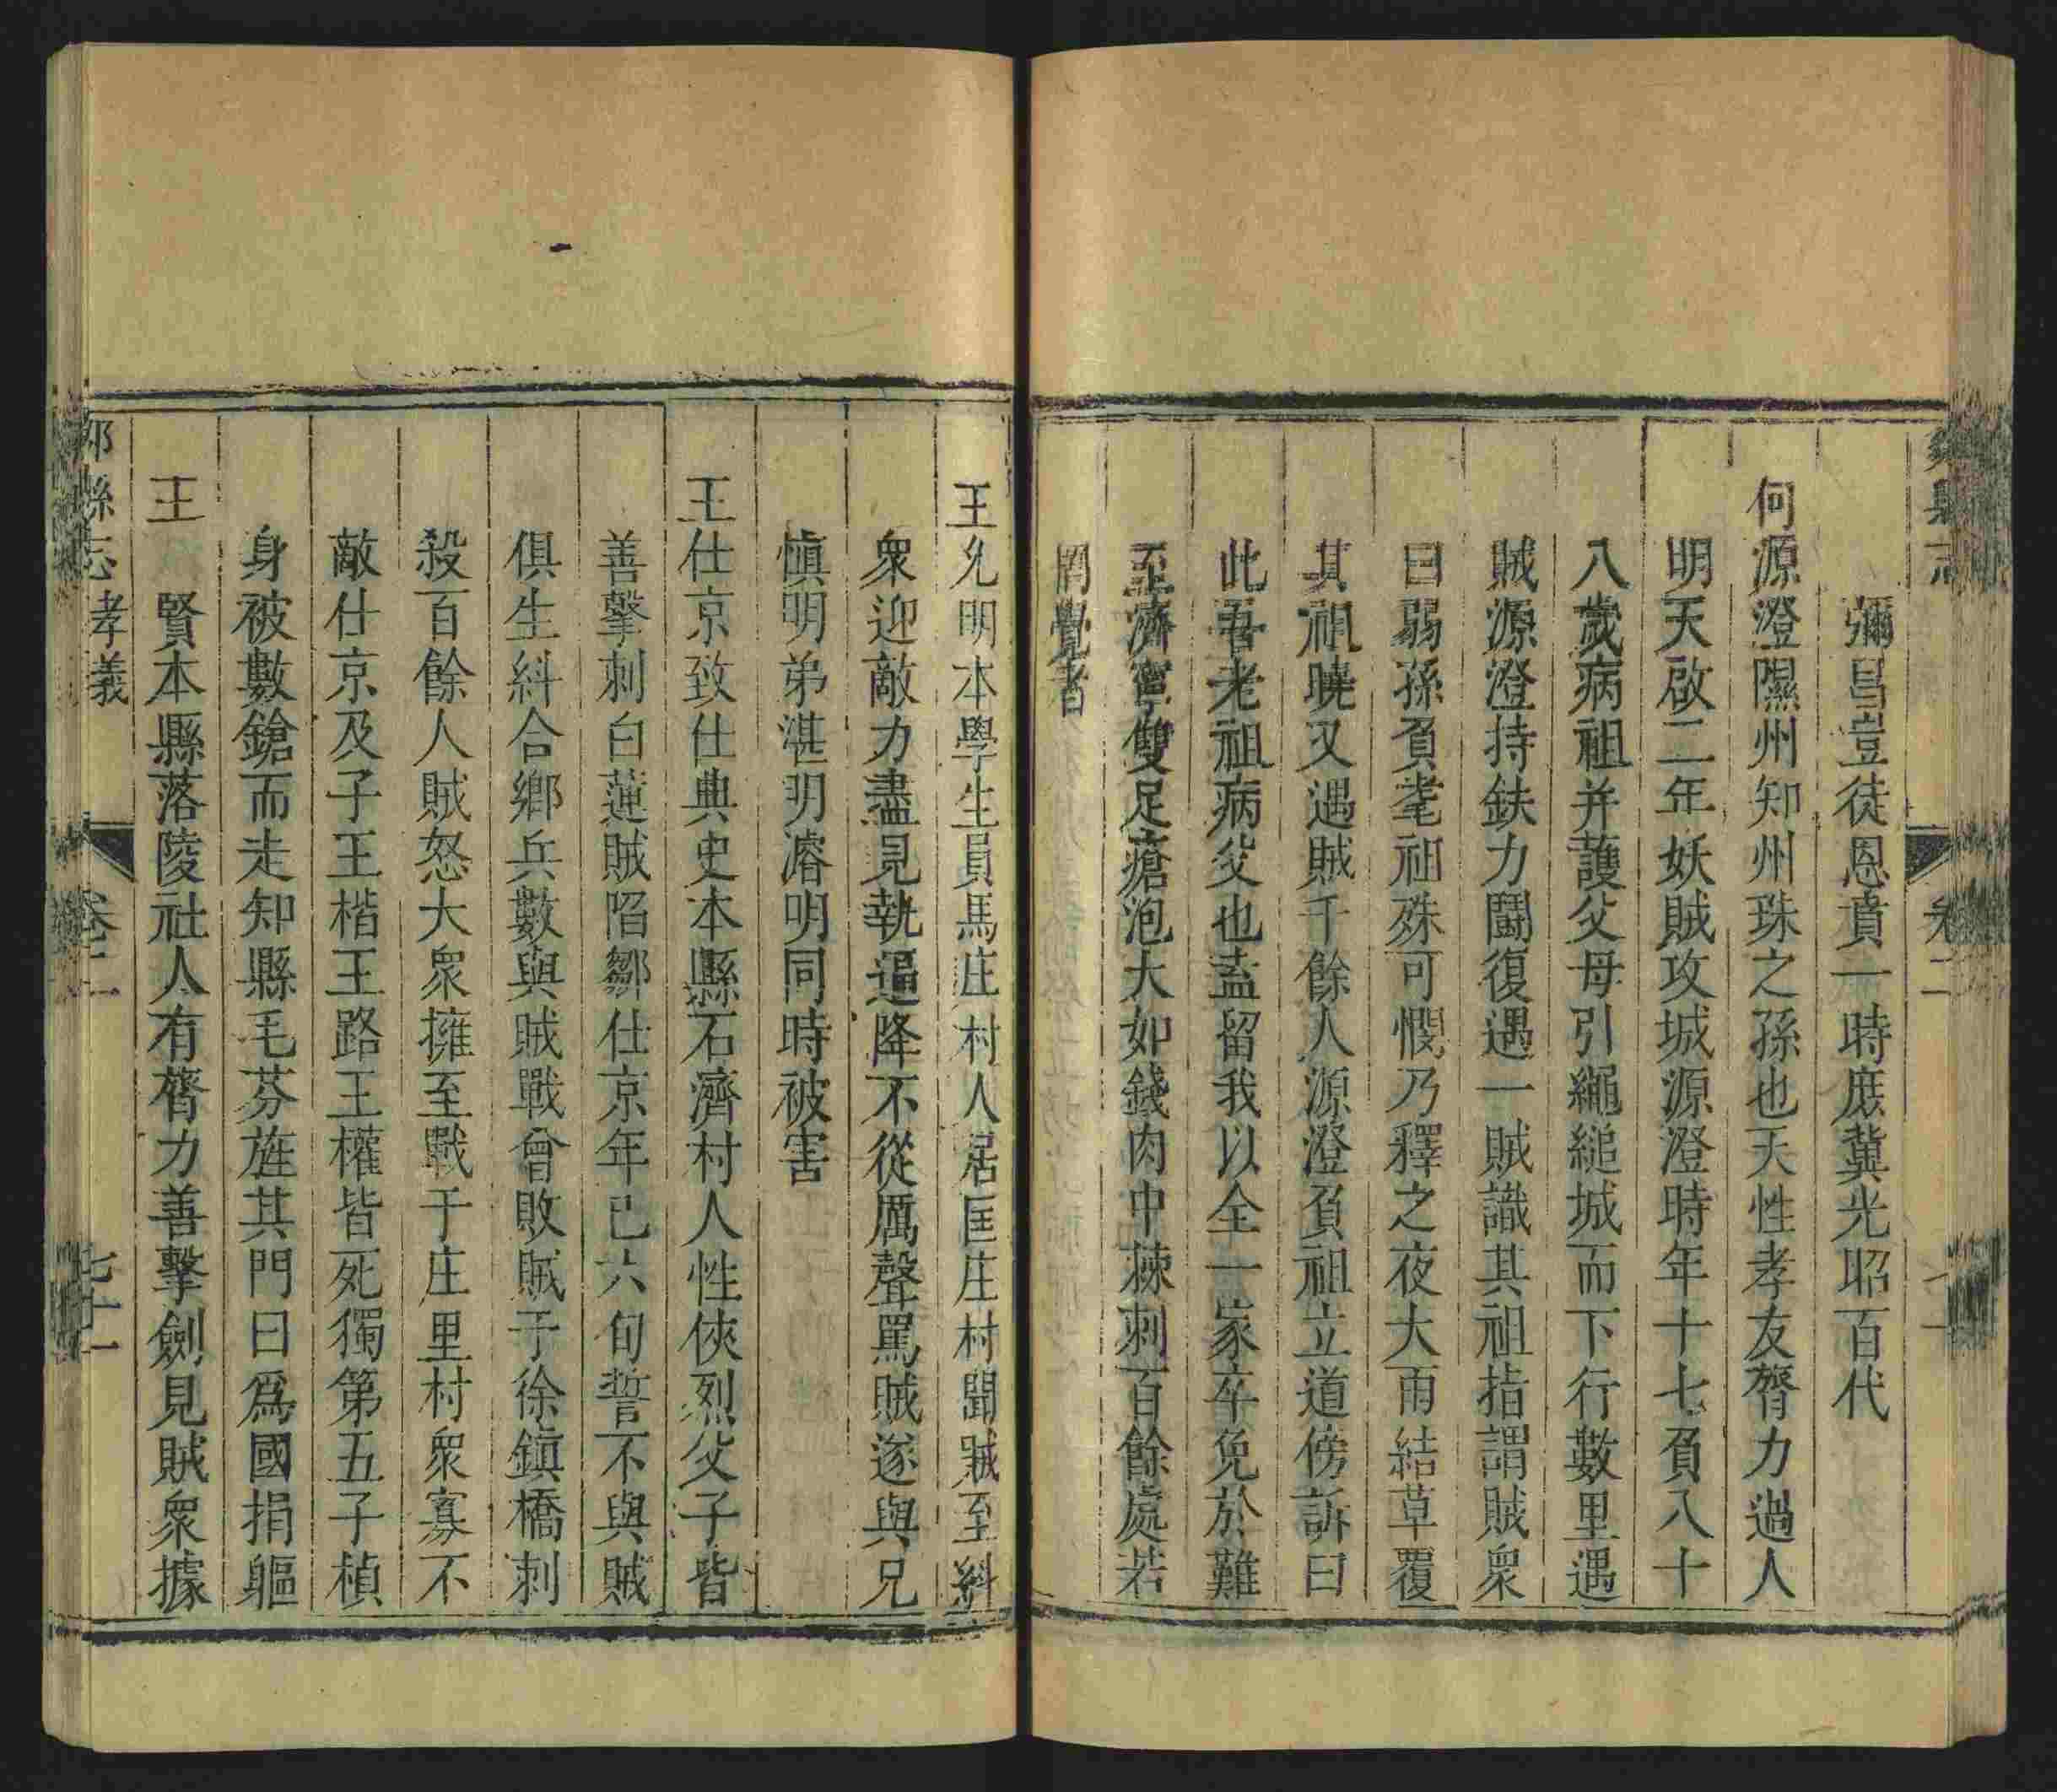 彌昌豈徒恩賁一時庶冀光昭百代
何源澄隰州知州珠之孫也天性孝友膂力過人
明天啟二年妖賊攻城源澄時年十七負八十
八歲病祖并護父母引繩縋城而下行數里遇
賊源澄持鈇力鬪復遇一賊識其祖指謂賊衆
曰弱孫負耄祖殊可憫乃釋之夜大雨結草覆
其祖曉又遇賊千餘人源澄負祖立道傍訴曰
此吾老祖病父也盍留我以全一家卒免於難
至濟寧雙足瘡泡大如錢肉中棘刺百餘處若
罔覺者
王允明本學生員馬庄村人居匡庄村聞賊至糾
衆迎敵力盡見執逼降不從厲聲罵賊遂與兄
慎明弟湛明濬明同時被害
王仕京致仕典史本縣石濟村人性俠烈父子皆
善擊刺白蓮賊陷鄒仕京年已六旬誓不與賊
俱生糾合鄉兵數與賊戰曾敗賊于徐鎮橋刺
殺百餘人賊怒大衆擁至戰于庄里村衆寡不
敵仕京及子王楷王路王權皆死獨第五子楨
身被數鎗而走知縣毛芬旌其門曰爲國捐軀
王 賢本縣落陵社人有膂力善擊劍見賊衆據
縣志 孝義 卷二 七十一